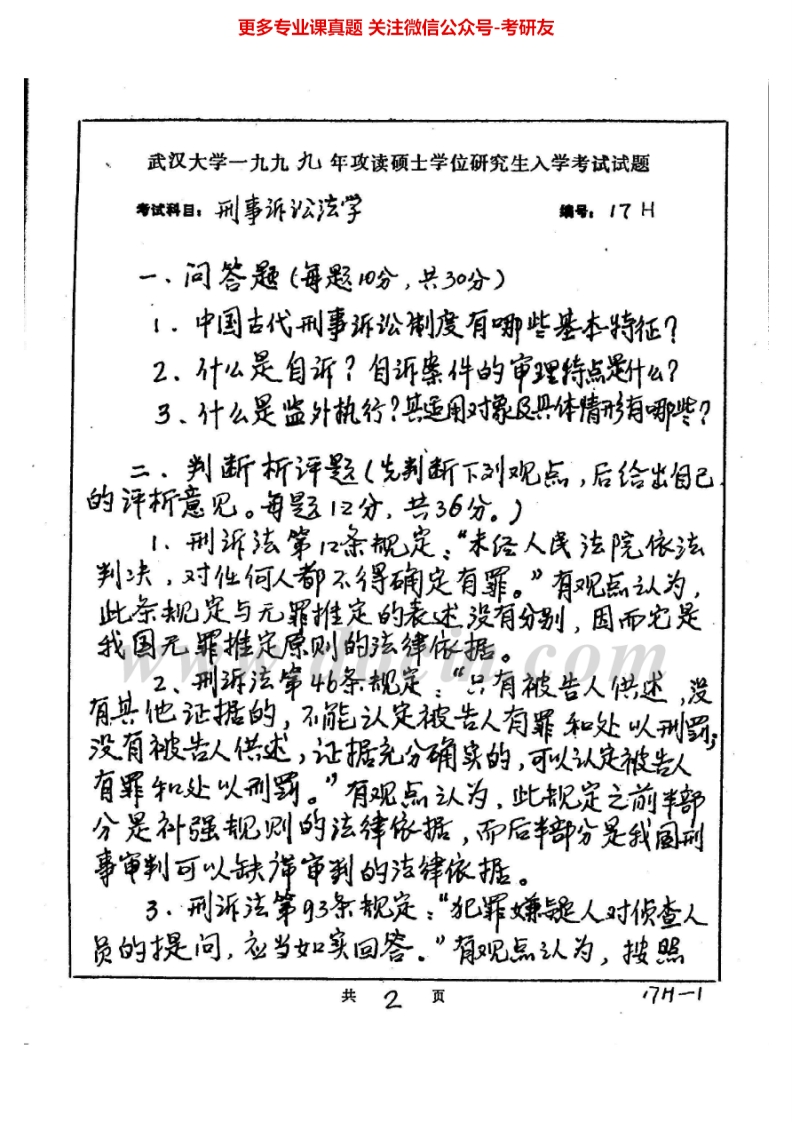 更多专业课真题 关注微信公众号-考研友
武汉大学一九九九年攻读硕士学位研究生入学考试试题
考试科目：刑事诉讼法学 编号：17H
一、问答题（每题10分，共30分）
1．中国古代刑事诉讼制度有哪些基本特征？
2、什么是自诉？自诉案件的审理特点是什么？
3、什么是监外执行？其适用对象及具体情形有哪些？
二、判断析评题（先判断下列观点，后给出自己
的评析意见。每题12分，共36分。）
1．刑诉法第12条规定：“未经人民法院依法
判决，对任何人都不得确定有罪。”有观点认为，
此条规定与无罪推定的表述没有分别，因而它是
我国无罪推定原则的法律依据。
2、刑诉法第46条规定：“只有被告人供述，没
有其他证据的，不能认定被告人有罪和处以刑罚；
没有被告人供述，证据充分确实的，可以认定被告人
有罪和处以刑罚。”有观点认为，此规定之前半部
分是补强规则的法律依据，而后半部分是我国刑
事审判可以缺席审判的法律依据。
3．刑诉法第93条规定：“犯罪嫌疑人对侦查人
员的提问，应当如实回答。”有观点认为，按照
共 2 页 17H-1